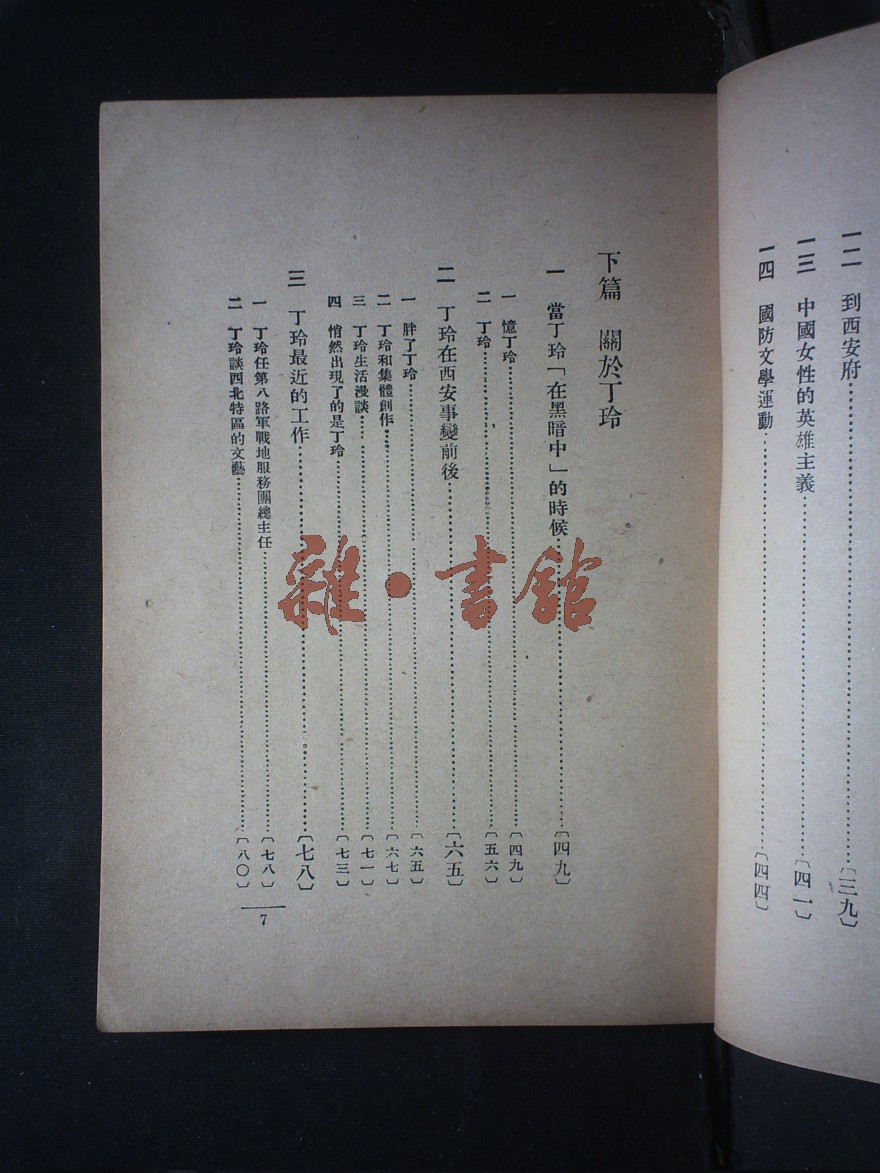 一二 到西安府〔三九〕
一三 中國女性的英雄主義〔四一〕
一四 國防文學運動〔四四〕
下篇 關於丁玲
一 當丁玲「在黑暗中」的時候〔四九〕
一 憶丁玲〔四九〕
二 丁玲〔五六〕
二 丁玲在西安事變前後〔六五〕
一 胖了丁玲〔六五〕
二 丁玲和集體創作〔六七〕
三 丁玲生活漫談〔七一〕
四 悄然出現了的是丁玲〔七三〕
三 丁玲最近的工作〔七八〕
一 丁玲任第八路軍戰地服務團總主任〔七八〕
二 丁玲談西北特區的文藝〔八〇〕
7
雜·書館